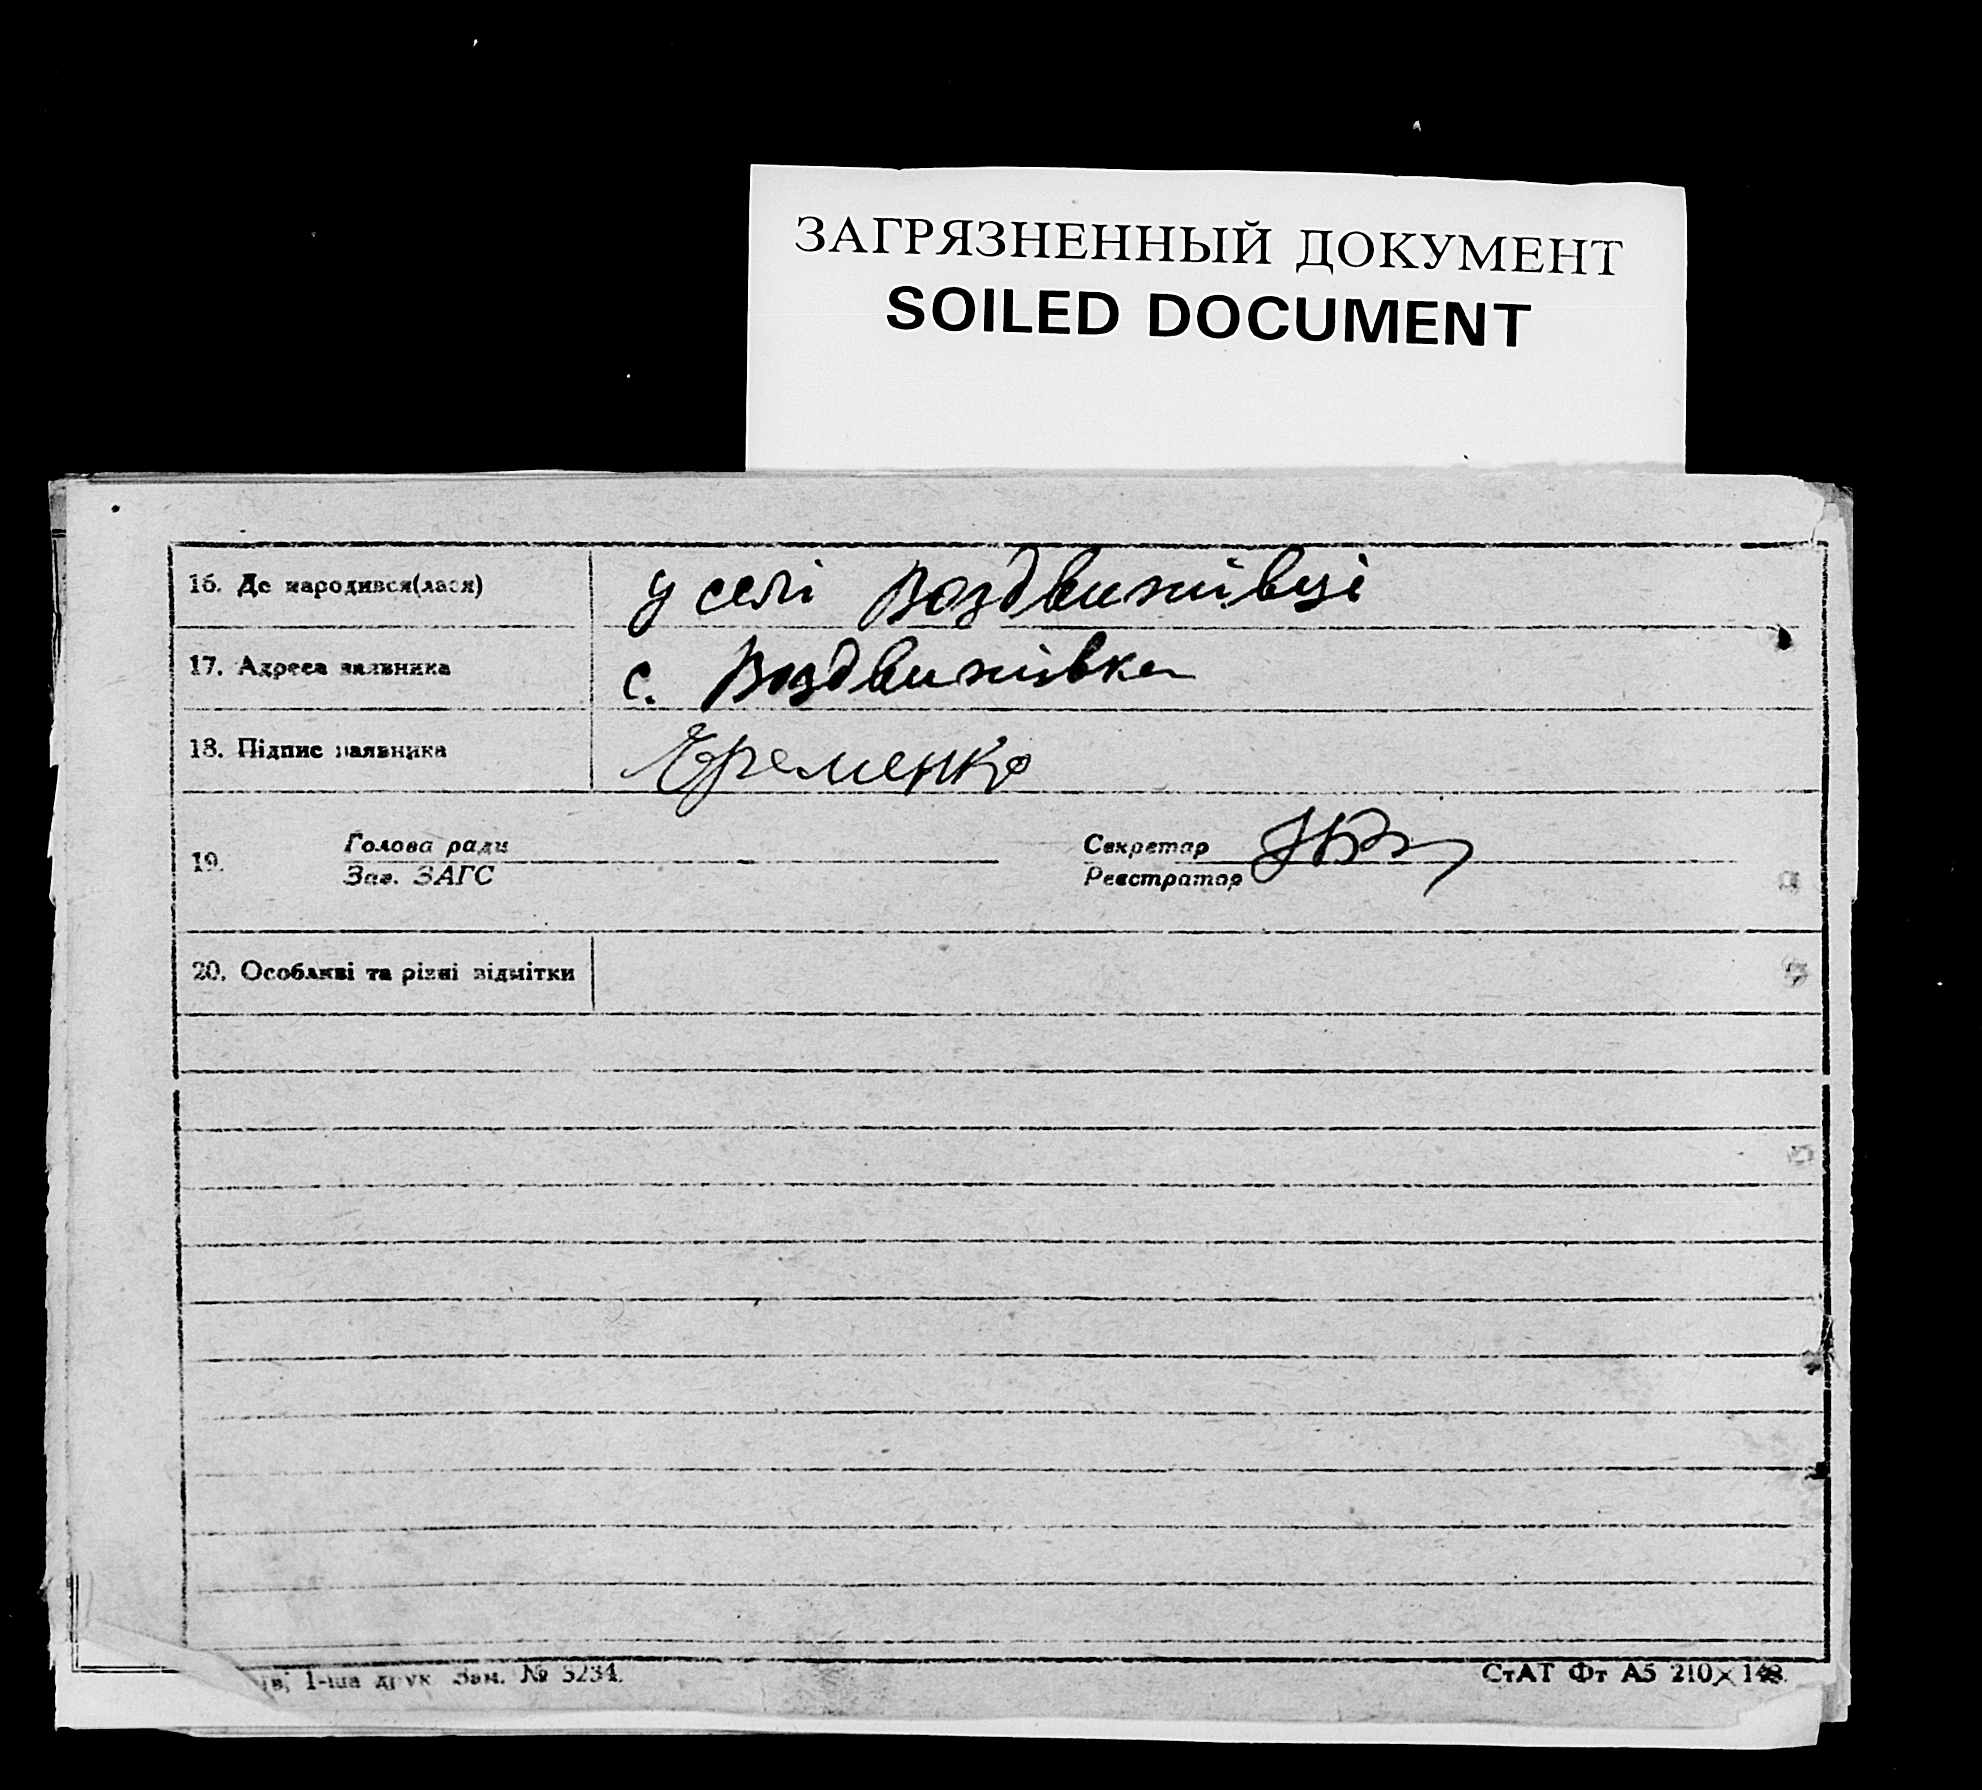 ЗАГРЯЗНЕННЫЙ ДОКУМЕНТ
SOILED DOCUMENT
16. Де народився(лася) у селі Воздвижівці
17. Адреса заявника с. Воздвижівка
18. Підпис заявника Єременко
19. Голова ради Секретар
Зав. ЗАГС Реєстратор
20. Особливі та різні відмітки
1-ша друк Зам. № 3234. СтАТ Фт А5 210×148.